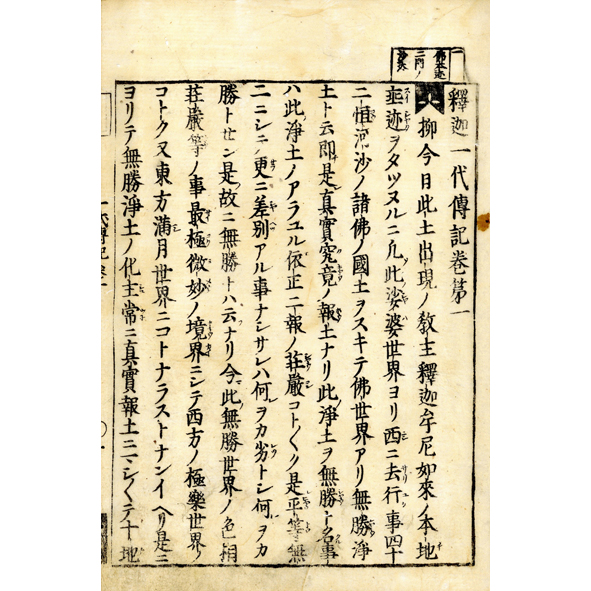 釋迦一代傳記卷第一
抑今日此土出現ノ敎主釋迦牟尼如來ノ本地
垂迹ヲタツヌルニ凡此娑婆世界ヨリ西ニ去行事四十
二恒河沙ノ諸佛ノ國土ヲスキテ佛世界アリ無勝淨
土ト云即是真實究竟ノ報土ナリ此淨土ヲ無勝ト名事
ハ此淨土ノアラユル依正二報ノ荘嚴コト〱ク是平等無
二ニシテ更ニ差別アル事ナシサレハ何ヲカ劣トシ何ヲカ
勝トセン是故ニ無勝トハ云ナリ今此無勝世界ノ色相
荘嚴等ノ事最極微妙ノ境界ニシテ西方ノ極樂世界ノ
コトク又東方滿月世界ニコトナラストナンイヘリ是ニ
ヨリテ無勝淨土ノ化主常ニ真實報土ニマシ〱テ十地